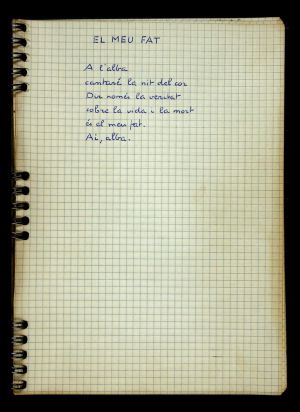 EL MEU FAT
A l'alba
cantaré la nit del cor
Dir només la veritat
sobre la vida i la mort
és el meu fat.
Ai, alba.